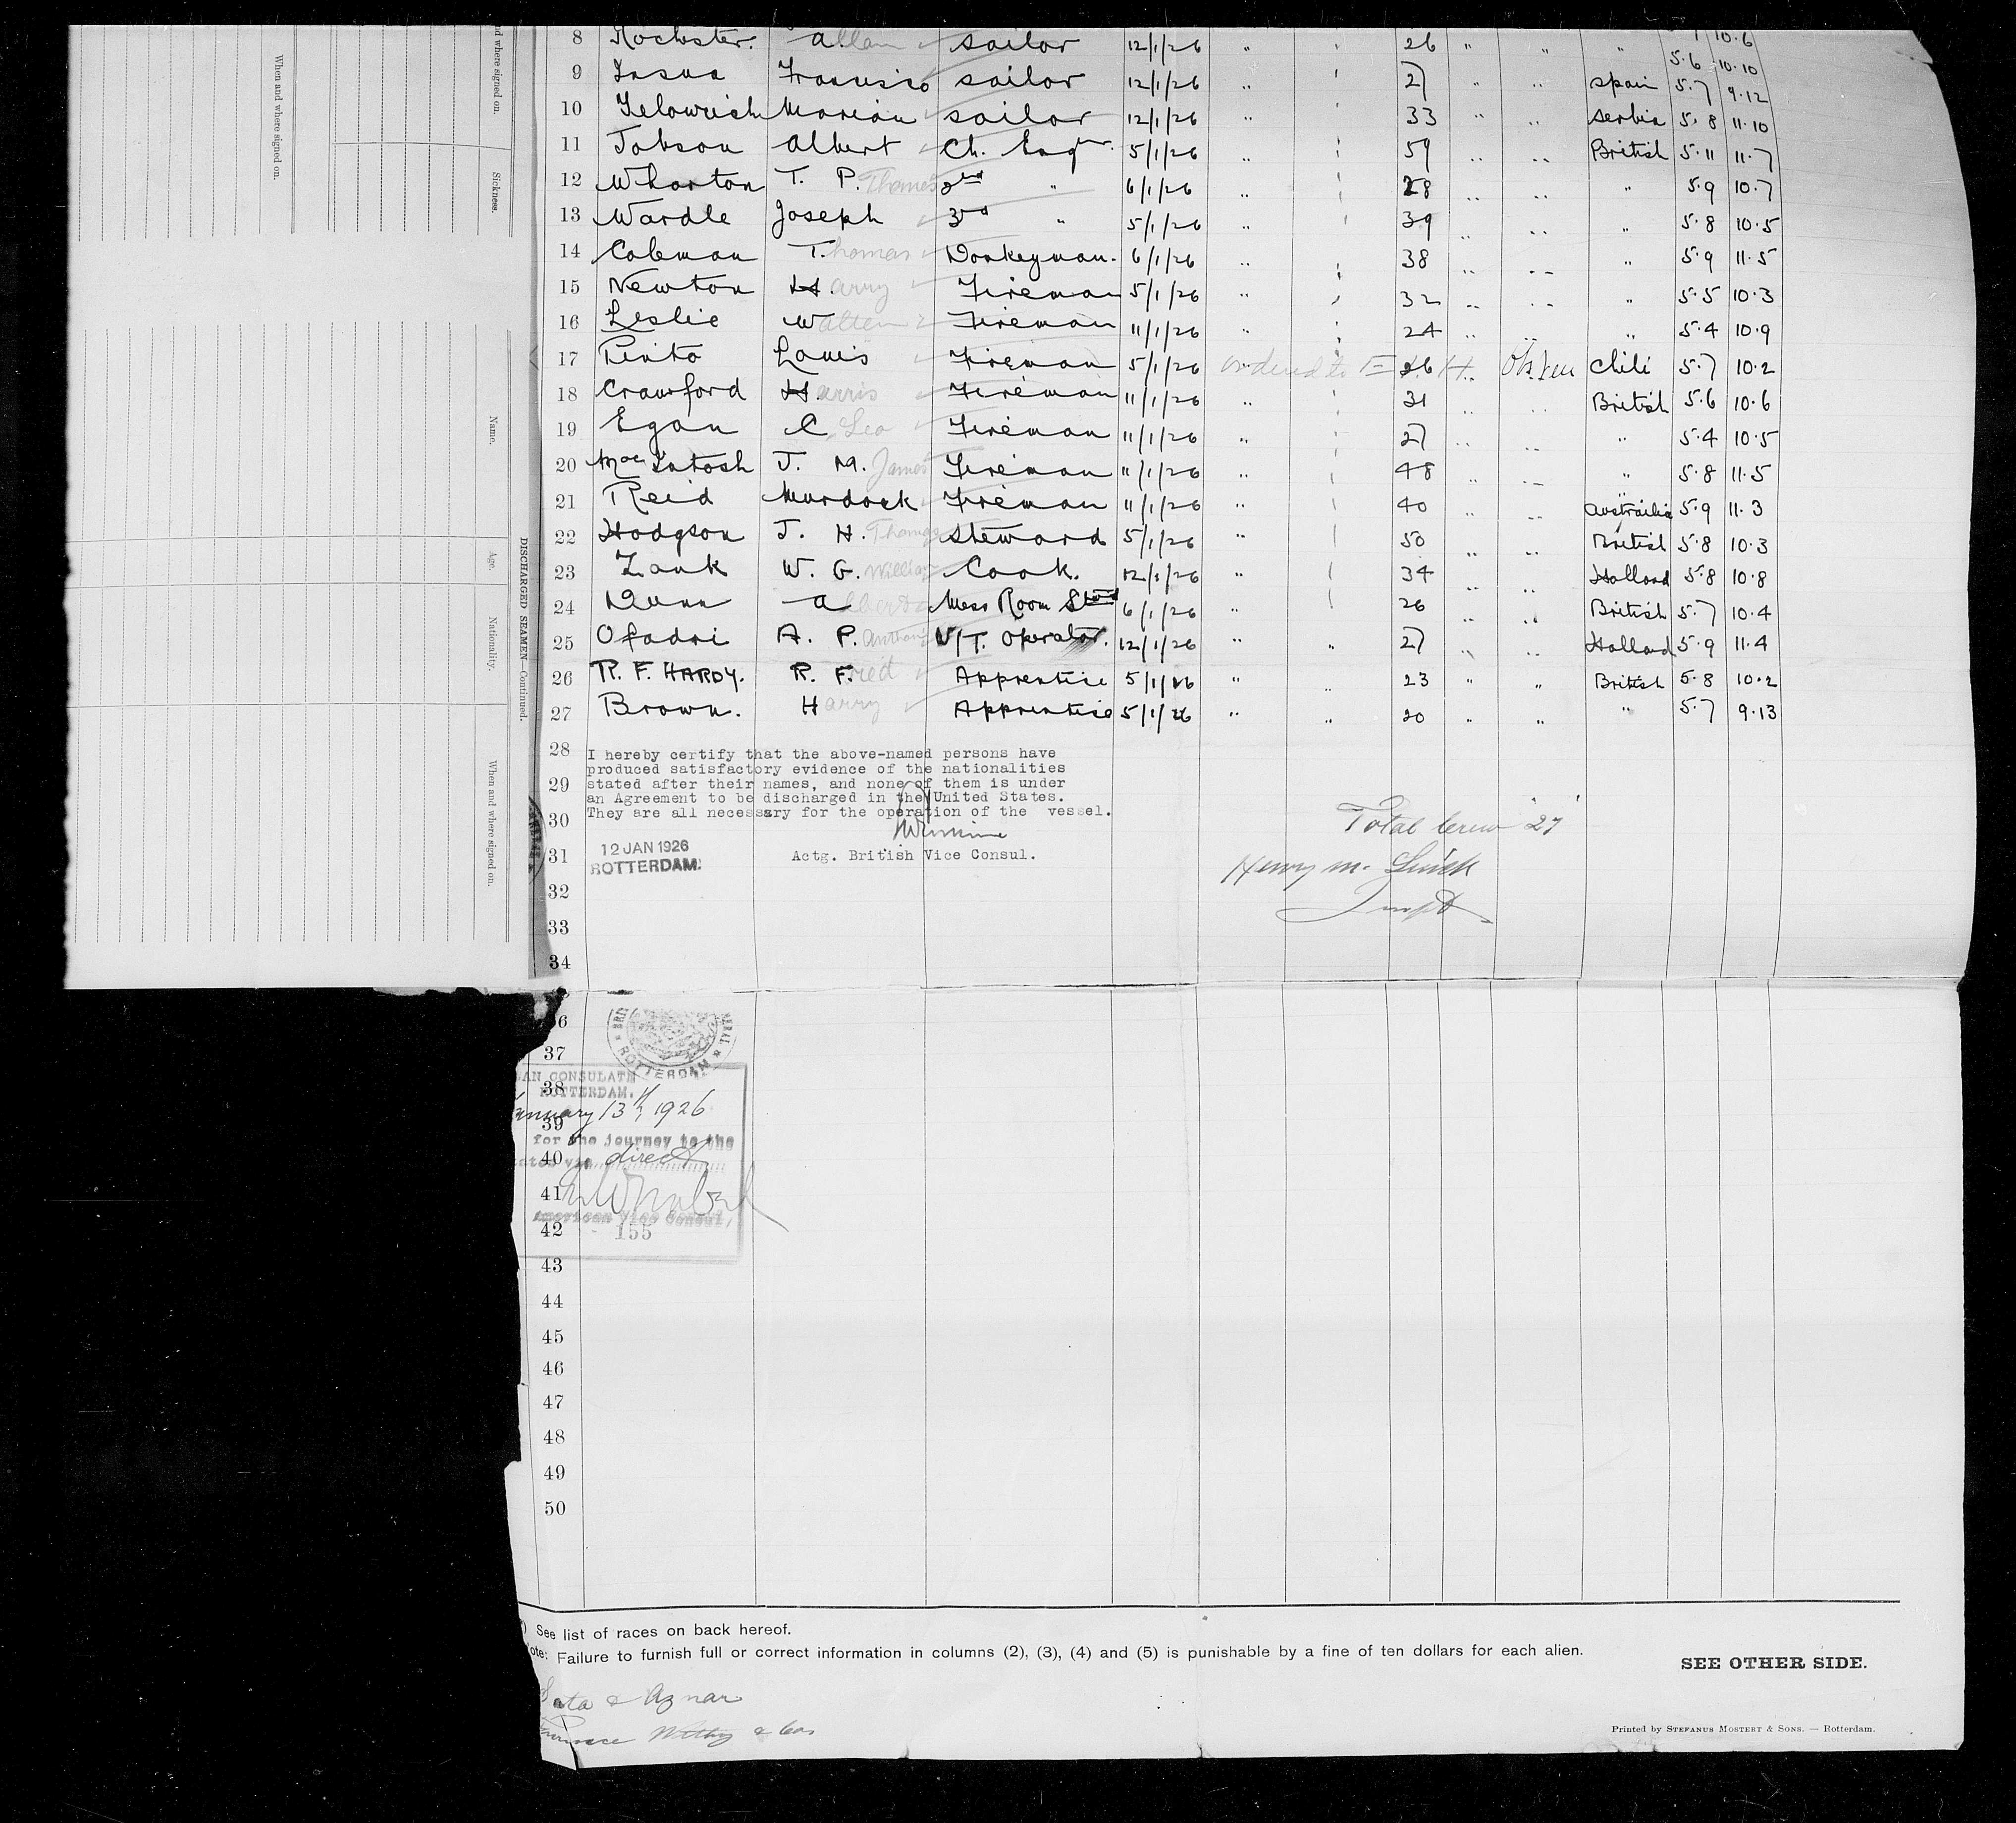 When and where signed on.
nd where signed on.
Sickness.
Name.
Age.
Nationality.
When and where signed on.
DISCHARGED SEAMEN—Continued.
8 Rochster. Allan sailor 12/1/26 " " 26 " " " 10.6
5.6 10.10
9 Insua Francisco sailor 12/1/26 " " 27 " " Spain 5.7 9.12
10 Marian sailor 12/1/26 " " 33 " " Serbia 5.8 11.10
11 Jobson Albert Ch. Engr. 5/1/26 " " 59 " " British 5.11 11.7
12 Wharton T. P. Thomas 2nd " 6/1/26 " " 28 " " " 5.9 10.7
13 Wardle Joseph 3rd " 5/1/26 " " 39 " " " 5.8 10.5
14 Coleman Thomas Donkeyman. 6/1/26 " " 38 " " " 5.9 11.5
15 Newton Harry Fireman 5/1/26 " " 32 " " " 5.5 10.3
16 Leslie Walter Fireman 11/1/26 " " 24 " " " 5.4 10.9
17 Pinto Louis Fireman 5/1/26 ordered to 26 H. Chili 5.7 10.2
18 Crawford Harris Fireman 11/1/26 " " 31 " " British 5.6 10.6
19 Egan C Leo Fireman 11/1/26 " " 27 " " " 5.4 10.5
20 MacIntosh J. M. James Fireman 11/1/26 " " 48 " " " 5.8 11.5
21 Reid Murdock Fireman 11/1/26 " " 40 " " Austrailia 5.9 11.3
22 Hodgson J. H. Thomas Steward 5/1/26 " " 50 " " British 5.8 10.3
23 Zank W. G. William Cook. 12/1/26 " " 34 " " Holland 5.8 10.8
24 Dunn Albert Mess Room Stwd 6/1/26 " " 26 " " British 5.7 10.4
25 Ofadri A. P. Anthony W/T. Operator. 12/1/26 " " 27 " " Holland 5.9 11.4
26 R. F. HARDY. R. Fred Apprentice 5/1/26 " " 23 " " British 5.8 10.2
27 Brown. Harry Apprentice 5/1/26 " " 20 " " " 5.7 9.13
28 I hereby certify that the above-named persons have
produced satisfactory evidence of the nationalities
29 stated after their names, and none of them is under
an Agreement to be discharged in the United States.
30 They are all necessary for the operation of the vessel.
Total Crew 27
31 12 JAN 1926 Actg. British Vice Consul.
ROTTERDAM.
Henry M.
32
33
34
36
ROTTERDAM
37
AN CONSULATE
38 ROTTERDAM.
January 13th, 1926
39
for the journey to the
40 direct
41
American Vice Consul,
42 155
43
44
45
46
47
48
49
50
) See list of races on back hereof.
ote: Failure to furnish full or correct information in columns (2), (3), (4) and (5) is punishable by a fine of ten dollars for each alien.
SEE OTHER SIDE.
Sota & Aznar
Furness Withy & Co.
Printed by STEFANUS MOSTERT & SONS. — Rotterdam.